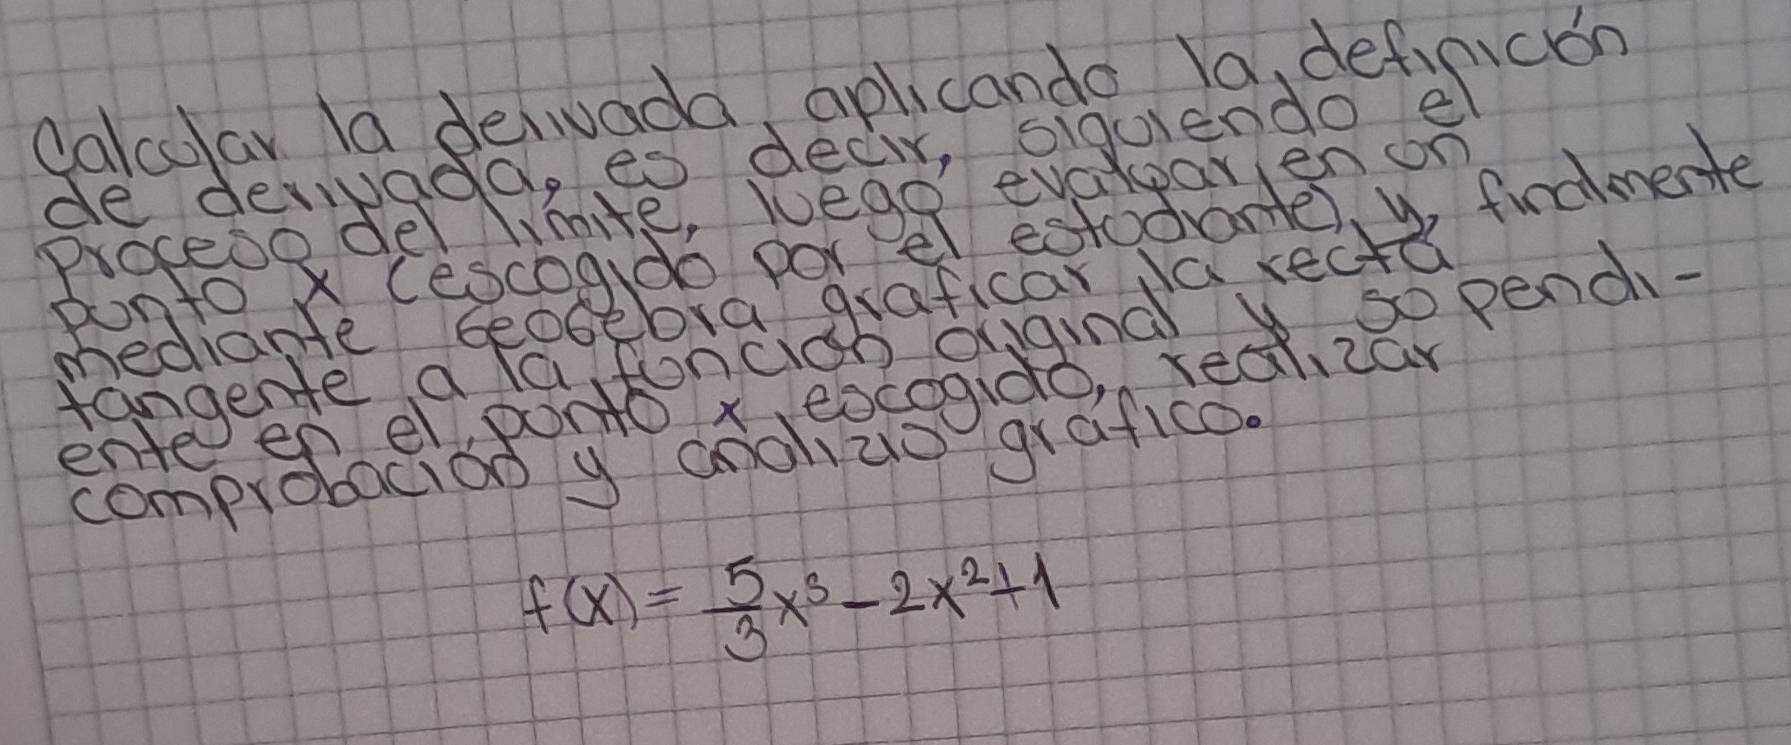 Calcular la derivada, aplicando la definición
de derivada, es decir, siguiendo el
proceso del límite, luego evaluar en un
punto x (escogido por el estudiante), y, finalmente
mediante Geogebra graficar la recta
tangente a la función original y su pendi-
ente en el punto x escogido, realizar
comprobación y analizis gráfico.
f(x) = 5/3 x³ - 2x² + 1